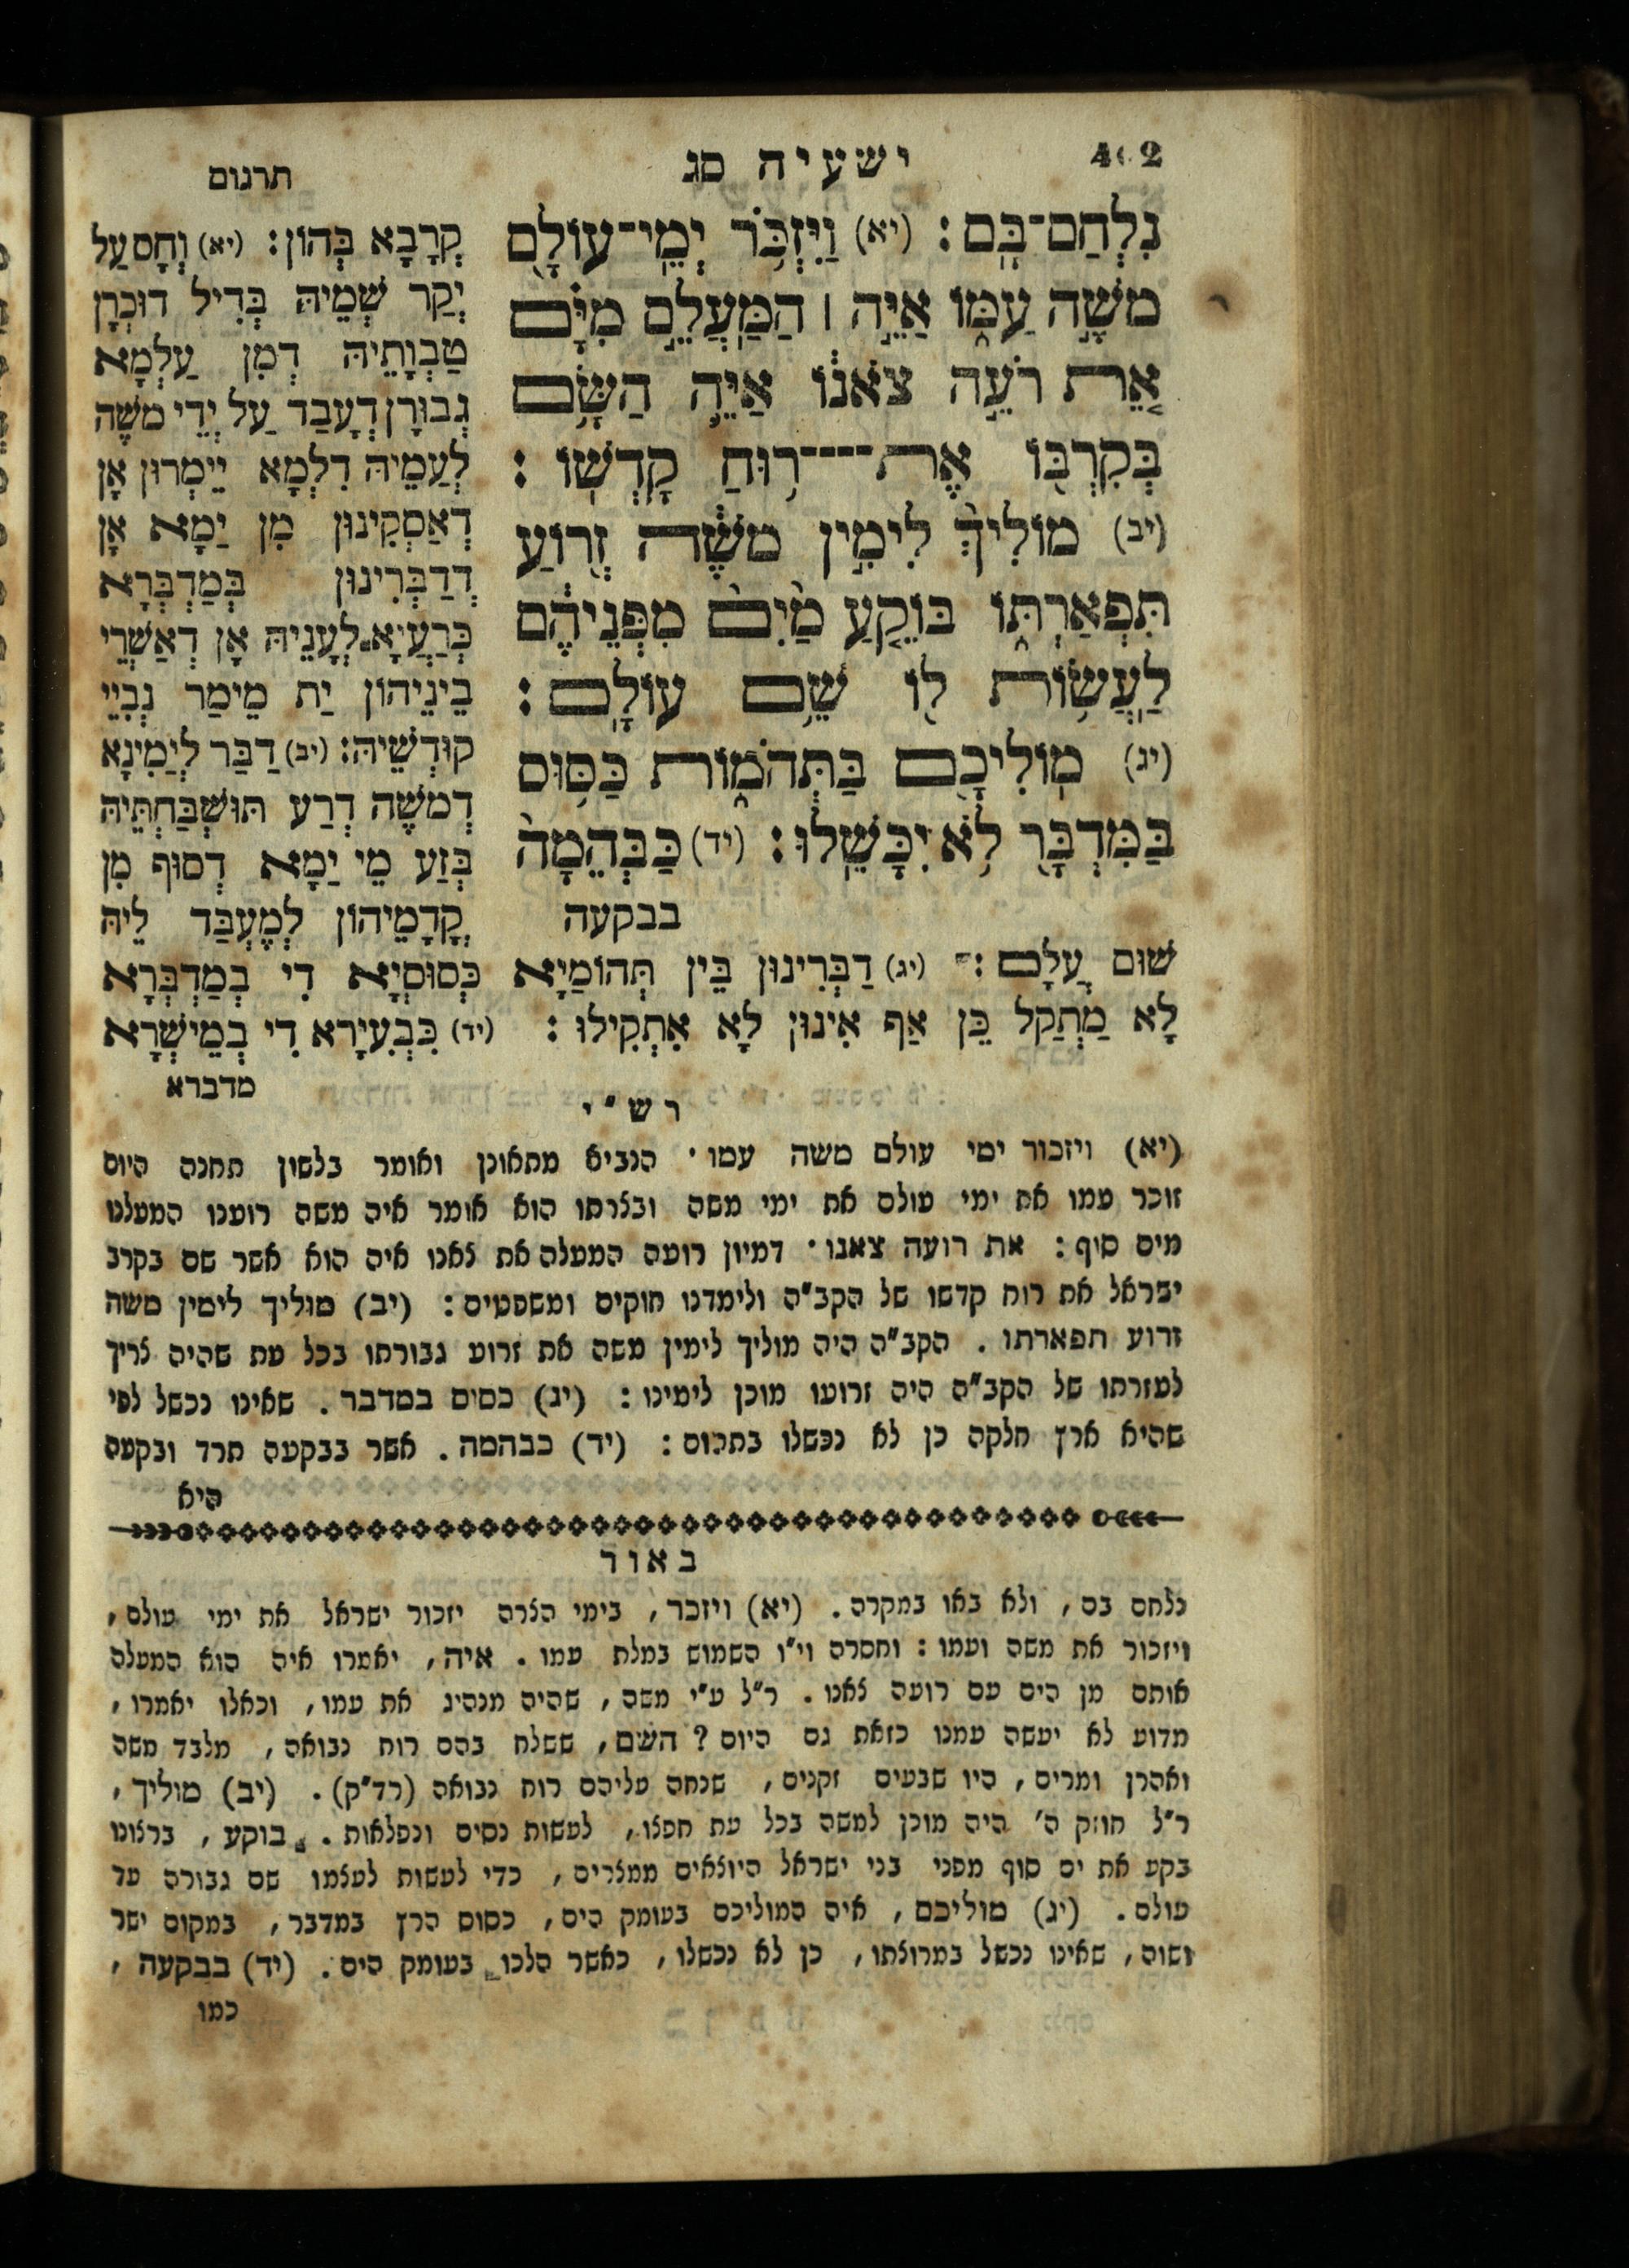 402
ישעיה סג
תרגום
נִלְחַם־בָּם׃ (יא) וַיִּזְכֹּר יְמֵי־עוֹלָם
מֹשֶׁה עַמּוֹ אַיֵּה ׀ הַמַּעֲלֵם מִיָּם
אֵת רֹעֵה צֹאנוֹ אַיֵּה הַשָּׂם
בְּקִרְבּוֹ אֶת־רוּחַ קָדְשׁוֹ׃
(יב) מוֹלִיךְ לִימִין מֹשֶׁה זְרוֹעַ
תִּפְאַרְתּוֹ בּוֹקֵעַ מַיִם מִפְּנֵיהֶם
לַעֲשׂוֹת לוֹ שֵׁם עוֹלָם׃
(יג) מוֹלִיכָם בַּתְּהֹמוֹת כַּסּוּס
בַּמִּדְבָּר לֹא יִכָּשֵׁלוּ׃ (יד) כַּבְּהֵמָה
בבקעה
קְרָבָא בְּהוֹן׃ (יא) וְחָס עַל
יְקַר שְׁמֵיהּ בְּדִיל דוּכְרָן
טַבְוָתֵיהּ דְמִן עַלְמָא
גְבוּרָן דְעָבַד עַל יְדֵי מֹשֶׁה
לְעַמֵיהּ דִלְמָא יֵימְרוּן אָן
דְאַסְקִינוּן מִן יַמָא אָן
דְדַבְּרִינוּן בְּמַדְבְּרָא
כְּרַעְיָא לְעָנֵיהּ אָן דְאַשְׁרֵי
בֵינֵיהוֹן יַת מֵימַר נְבִיֵי
קוּדְשֵׁיהּ׃ (יב) דַבַּר לְיַמִינָא
דְמֹשֶׁה דְרַע תּוּשְׁבַּחְתֵּיהּ
בְּזַע מֵי יַמָא דְסוּף מִן
קֳדָמֵיהוֹן לְמֶעְבַּד לֵיהּ
שׁוּם עֲלָם׃ (יג) דַבְּרִינוּן בֵּין תְּהוֹמַיָא כְּסוּסְיָא דִי בְמַדְבְּרָא
לָא מַתְקַל כֵּן אַף אִינוּן לָא אִתְקִילוּ׃ (יד) כִּבְעִירָא דִי בְמֵישְׁרָא
מדברא
רש״י
(יא) ויזכור ימי עולם משה עמו · הנביא מתאונן ואומר בלשון תחנה היום
זוכר עמו את ימי עולם את ימי משה ובצרתו הוא אומר איה משה רוענו המעלנו
מים סוף : את רועה צאנו · דמיון רועה המעלה את צאנו איה הוא אשר שם בקרב
ישראל את רוח קדשו של הקב״ה ולימדנו חוקים ומשפטים : (יב) מוליך לימין משה
זרוע תפארתו . הקב״ה היה מוליך לימין משה את זרוע גבורתו בכל עת שהיה צריך
לעזרתו של הקב״ה היה זרועו מוכן לימינו : (יג) כסוס במדבר . שאינו נכשל לפי
שהיא ארץ חלקה כן לא נכשלו בתהום : (יד) כבהמה . אשר בבקעה תרד ובקעה
היא
באור
נלחם בם , ולא באו במקרה . (יא) ויזכר , בימי הצרה יזכור ישראל את ימי עולם ,
ויזכור את משה ועמו : וחסרה וי״ו השמוש במלת עמו . איה , יאמרו איה הוא המעלה
אותם מן הים עם רועה צאנו . ר״ל ע״י משה , שהיה מנהיג את עמו , וכאלו יאמרו ,
מדוע לא יעשה עמנו כזאת גם היום ? השם , ששלח בהם רוח נבואה , מלבד משה
ואהרן ומרים , היו שבעים זקנים , שנחה עליהם רוח נבואה (רד״ק) . (יב) מוליך ,
ר״ל חוזק ה׳ היה מוכן למשה בכל עת חפצו , לעשות נסים ונפלאות . בוקע , ברצונו
בקע את ים סוף מפני בני ישראל היוצאים ממצרים , כדי לעשות לעצמו שם גבורה עד
עולם . (יג) מוליכם , איה המוליכם בעומק הים , כסוס הרץ במדבר , במקום ישר
ושוה , שאינו נכשל במרוצתו , כן לא נכשלו , כאשר הלכו בעומק הים . (יד) בבקעה ,
כמו